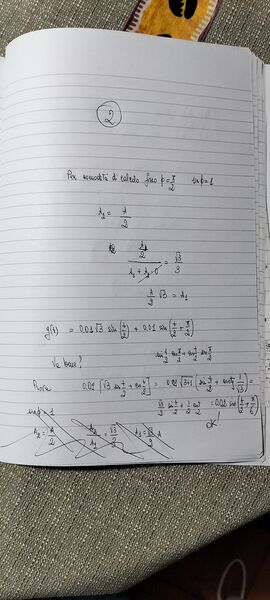 2
Per comodità di calcolo fisso φ = π/2 sin φ = 1
A₂ = A/2
A/2 / A₁ + A₂·0 = √3/3
A/2 √3 = A₁
y(t) = 0.01 √3 sin(t/2) + 0.01 sin(t/2 + π/2)
Va bene?
sin t/2 cos π/2 + cos t/2 sin π/2
Prova 0.01 [√3 sin t/2 + cos t/2] = 0.01 √3+1 (sin t/2 + arctg 1/√3) =
√3/2 sin t/2 + 1/2 cos t/2 = 0.02 sin (t/2 + π/6)
ok!
sin φ = 1
A₂ = A/2